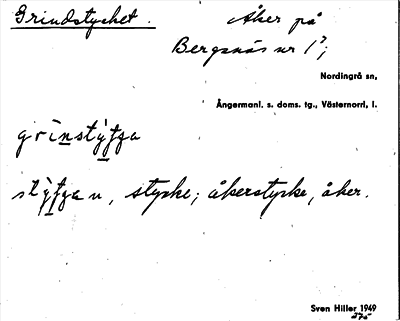 Grindstycket.
Åker på
Bergsnäs nr 1³;
Nordingrå sn,
Ångermanl. s. doms. tg., Västernorrl, l.
n, stycke; åkerstycke, åker.
Sven Hiller 1949